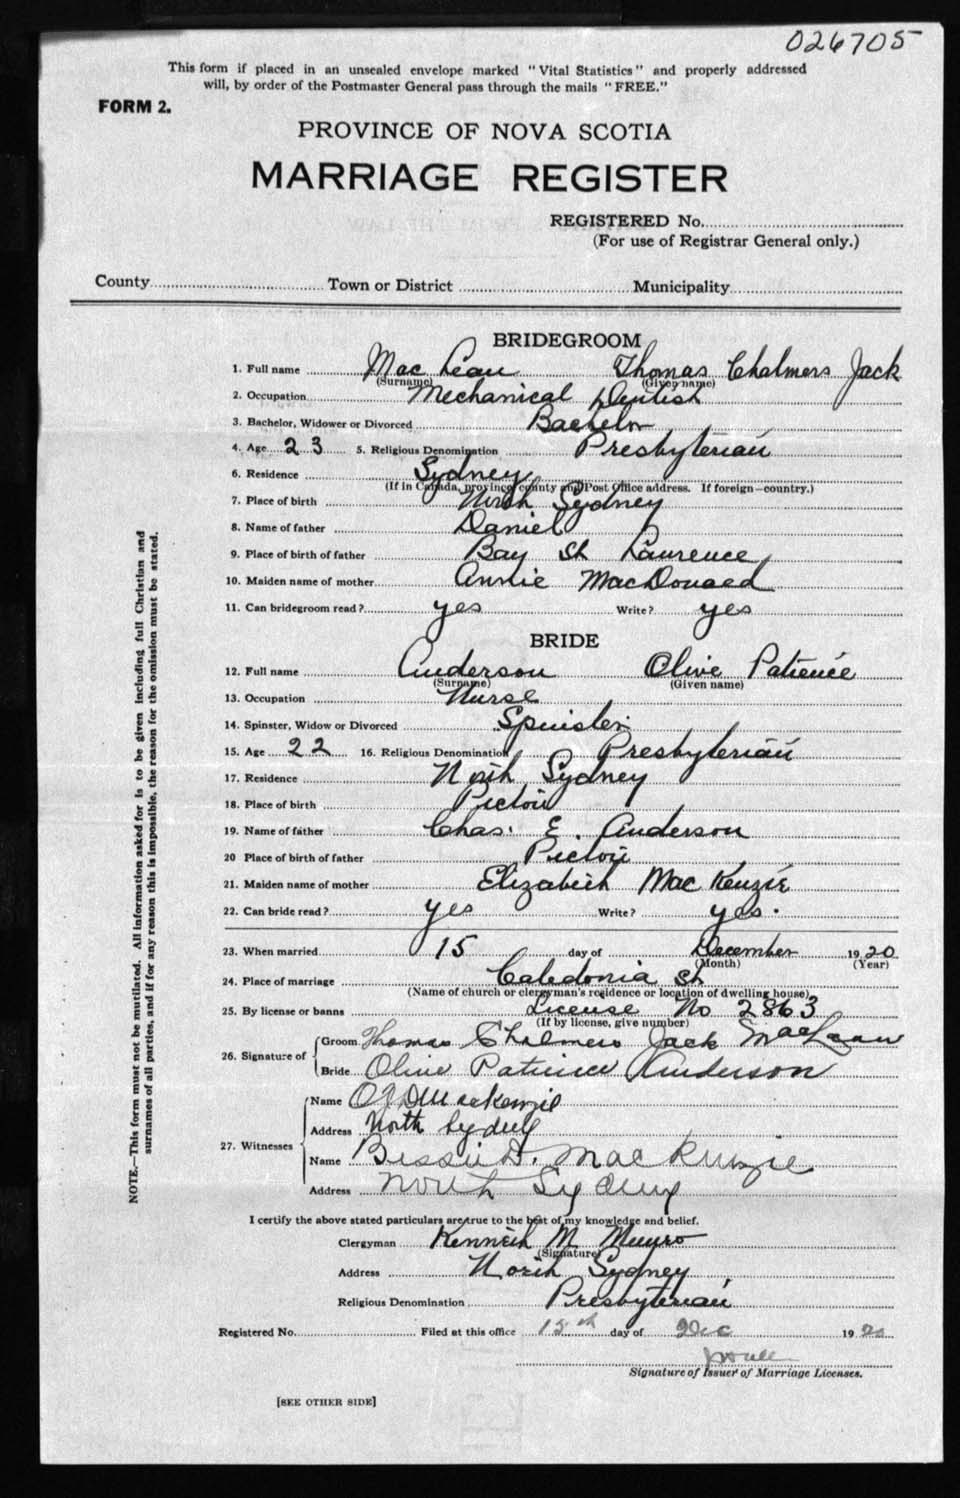 026705
This form if placed in an unsealed envelope marked "Vital Statistics" and properly addressed
will, by order of the Postmaster General pass through the mails "FREE."
FORM 2.
PROVINCE OF NOVA SCOTIA
MARRIAGE REGISTER
REGISTERED No.
(For use of Registrar General only.)
County Town or District Municipality
BRIDEGROOM
1. Full name Mac Lean Thomas Chalmers Jack
(Surname) (Given name)
2. Occupation Mechanical Dentist
3. Bachelor, Widower or Divorced Bachelor
4. Age 23 5. Religious Denomination Presbyterian
6. Residence Sydney
(If in Canada, province, county and Post Office address. If foreign—country.)
7. Place of birth North Sydney
8. Name of father Daniel
9. Place of birth of father Bay St Laurence
10. Maiden name of mother Annie MacDonald
11. Can bridegroom read? yes Write? yes
BRIDE
12. Full name Anderson Olive Patience
(Surname) (Given name)
13. Occupation Nurse
14. Spinster, Widow or Divorced Spinster
15. Age 22 16. Religious Denomination Presbyterian
17. Residence North Sydney
18. Place of birth Pictou
19. Name of father Chas. E. Anderson
20 Place of birth of father Pictou
21. Maiden name of mother Elizabeth Mac Kenzie
22. Can bride read? yes Write? yes.
23. When married 15 day of December 1920
(Month) (Year)
24. Place of marriage Caledonia St
(Name of church or clergyman's residence or location of dwelling house)
25. By license or banns License No 2863
(If by license, give number)
26. Signature of Groom Thomas Chalmers Jack MacLean
Bride Olive Patience Anderson
27. Witnesses
Name MacKenzie
Address North Sydney
Name Bessie D. MacKenzie
Address North Sydney
I certify the above stated particulars are true to the best of my knowledge and belief.
Clergyman Kenneth M. Munro
(Signature)
Address North Sydney
Religious Denomination Presbyterian
Registered No. Filed at this office 15th day of Dec 1920
Signature of Issuer of Marriage Licenses.
[SEE OTHER SIDE]
NOTE.—This form must not be mutilated. All information asked for is to be given including full Christian and
surnames of all parties, and if for any reason this is impossible, the reason for the omission must be stated.